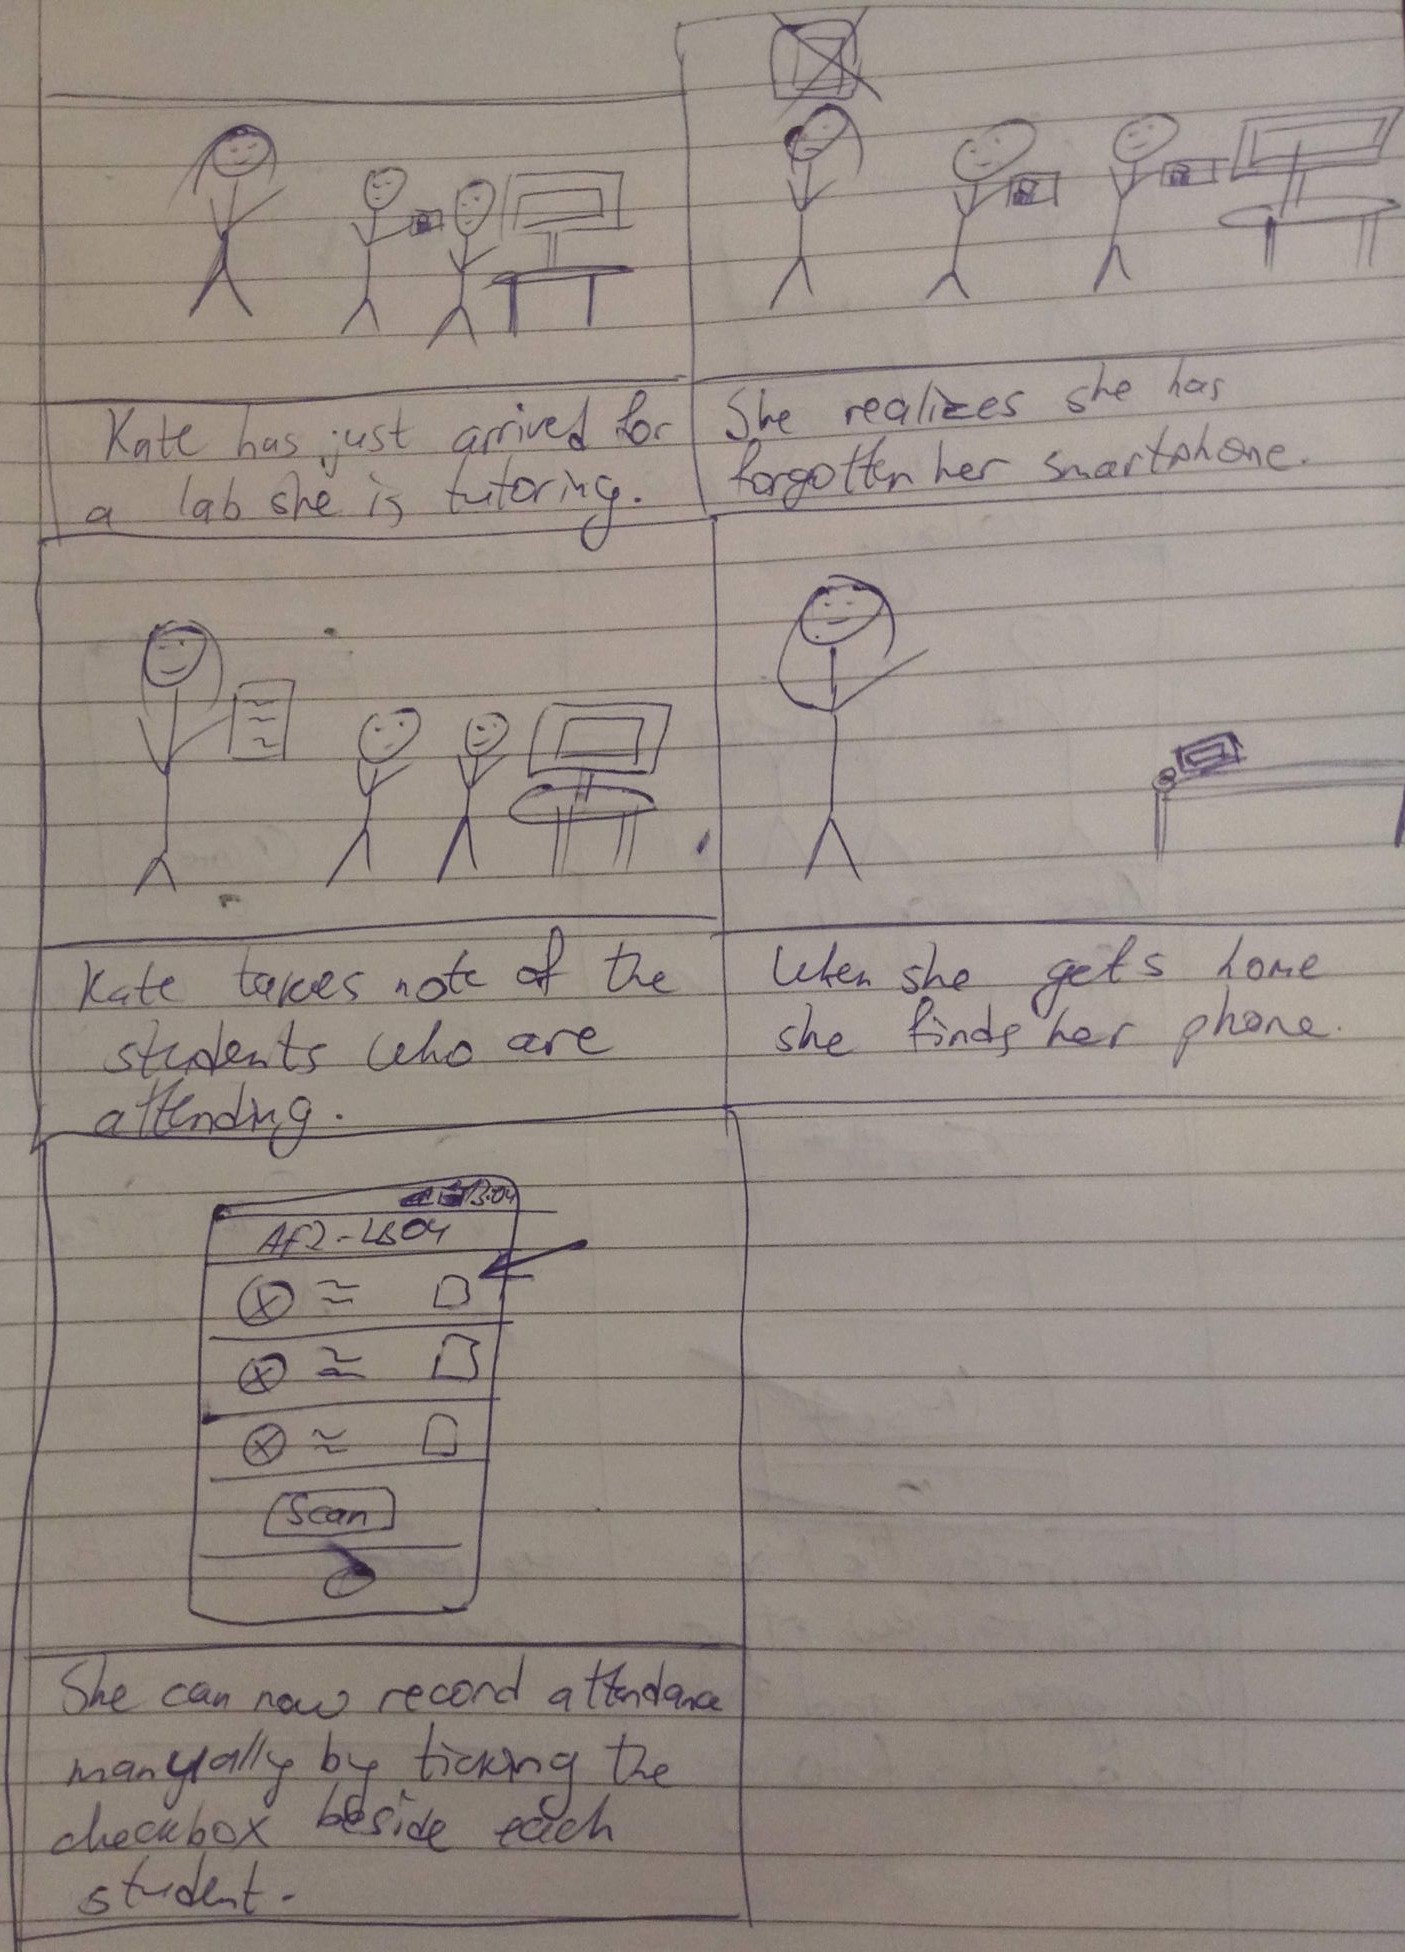 Kate has just arrived for
a lab she is tutoring.
She realizes she has
forgotten her smartphone.
Kate takes note of the
students who are
attending.
When she gets home
she finds her phone.
AF2-LB04
Scan
She can now record attendance
manually by ticking the
checkbox beside each
student.